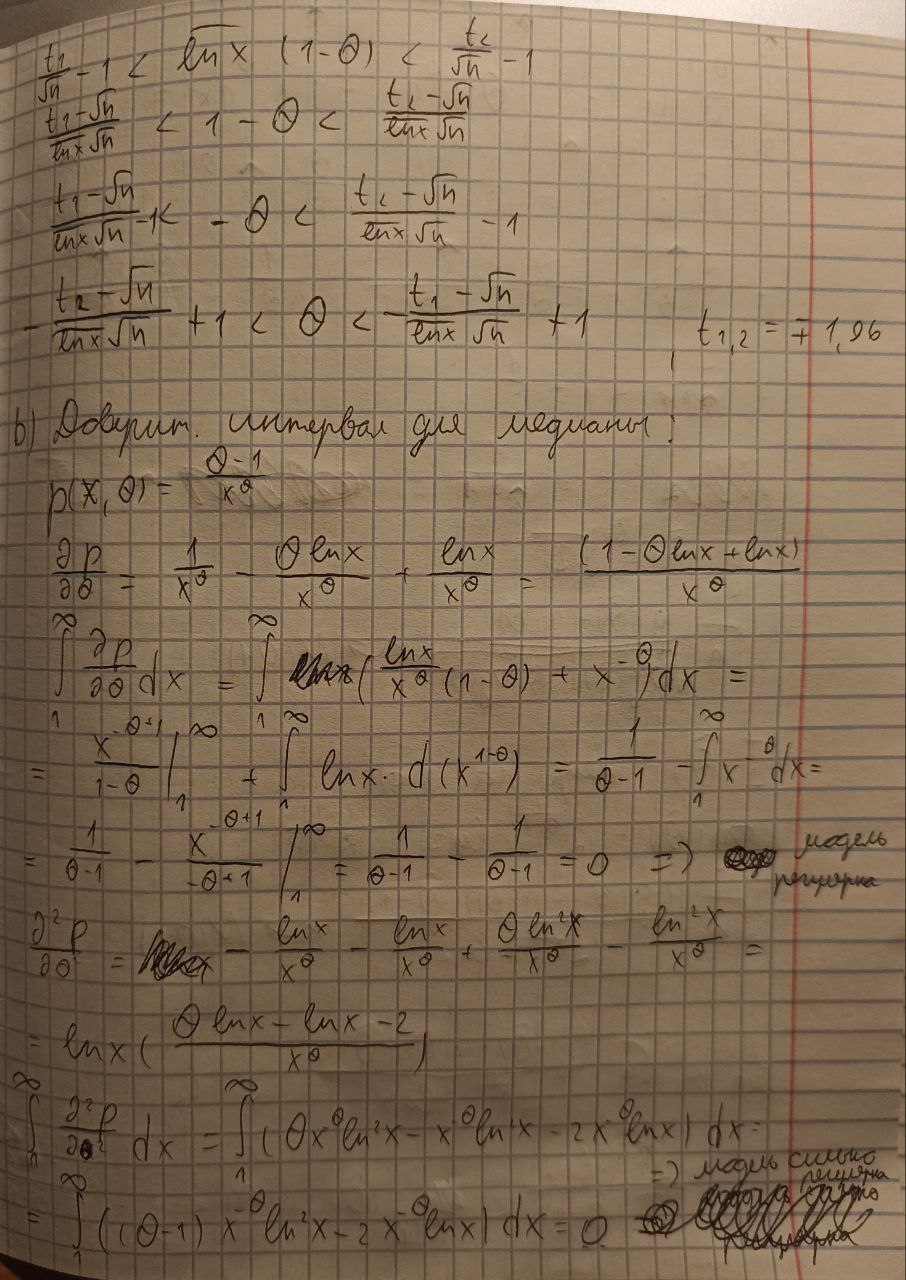 t₁/√n - 1 < \overline{ln x} (1-θ) < t₂/√n - 1
(t₁-√n)/(\overline{ln x} √n) < 1 - θ < (t₂-√n)/(\overline{ln x} √n)
(t₁-√n)/(\overline{ln x} √n) - 1 < - θ < (t₂-√n)/(\overline{ln x} √n) - 1
- (t₂-√n)/(\overline{ln x} √n) + 1 < θ < - (t₁-√n)/(\overline{ln x} √n) + 1, t₁,₂ = ∓ 1,96
b) Доверит. интервал для медианы:
p(x, θ) = (θ-1)/x^θ
∂p/∂θ = 1/x^θ - θ ln x/x^θ + ln x/x^θ = (1-θ ln x + ln x)/x^θ
∫₁^∞ ∂p/∂θ dx = ∫₁^∞ (ln x/x^θ (1-θ) + x^{-θ}) dx =
= x^{-θ+1}/(1-θ) |₁^∞ + ∫₁^∞ ln x · d(x^{1-θ}) = 1/(θ-1) - ∫₁^∞ x^{-θ} dx =
= 1/(θ-1) - x^{-θ+1}/(-θ+1) |₁^∞ = 1/(θ-1) - 1/(θ-1) = 0 => модель регулярна
∂²p/∂θ² = - ln x/x^θ - ln x/x^θ + θ ln²x/x^θ - ln²x/x^θ =
= ln x ((θ ln x - ln x - 2)/x^θ)
∫₁^∞ ∂²p/∂θ² dx = ∫₁^∞ (θx^{-θ} ln²x - x^{-θ} ln²x - 2x^{-θ} ln x) dx =
= ∫₁^∞ ((θ-1) x^{-θ} ln²x - 2x^{-θ} ln x) dx = 0 => модель сильно регулярна